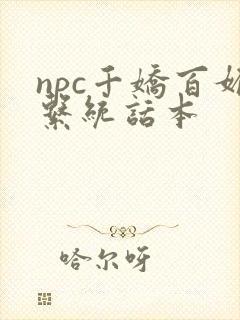 npc千嬌百媚
繫統話本
哈尔呀